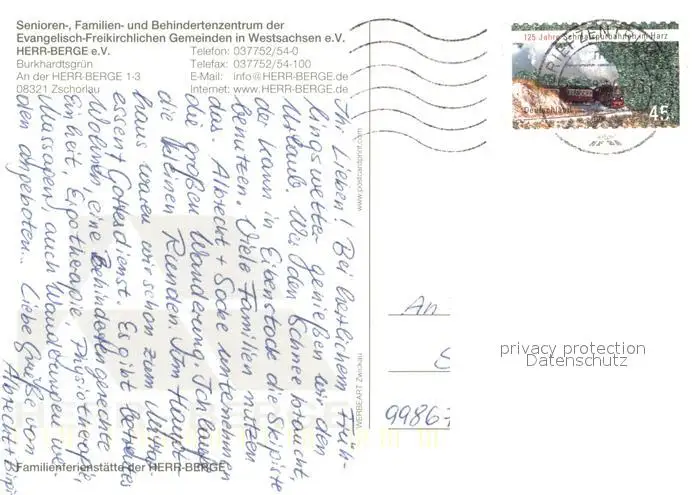 Senioren-, Familien- und Behindertenzentrum der
Evangelisch-Freikirchlichen Gemeinden in Westsachsen e.V.
HERR-BERGE e.V. Telefon: 037752/54-0
Burkhardtsgrün Telefax: 037752/54-100
An der HERR-BERGE 1-3 E-Mail: info@HERR-BERGE.de
08321 Zschorlau Internet: www.HERR-BERGE.de
125 Jahre Schmalspurbahnen im Harz
Deutschland
45
Ihr Lieben! Bei herrlichem Früh-
lingswetter genießen wir den
Urlaub. Wer den Schnee braucht,
der kann in Eibenstock die Skipiste
benutzen. Viele Familien nutzen
das. Albrecht + Socke unternehmen
die großen Wanderung. Ich laufe
die kleinen Runden. Im Haupt-
haus waren wir schon zum Mittag-
essen + Gottesdienst. Es gibt betreutes
Wohnen, eine Behindertengerechte
Einheit, Ergotherapie, Physiotherapie,
Massagen, auch Wanderungen wer-
den angeboten. Liebe Grüße von
Albrecht +
www.postcardprint.com
WERBEART Zwickau
An
9986
privacy protection
Datenschutz
HERR-BERGE
Familienferienstätte der HERR-BERGE